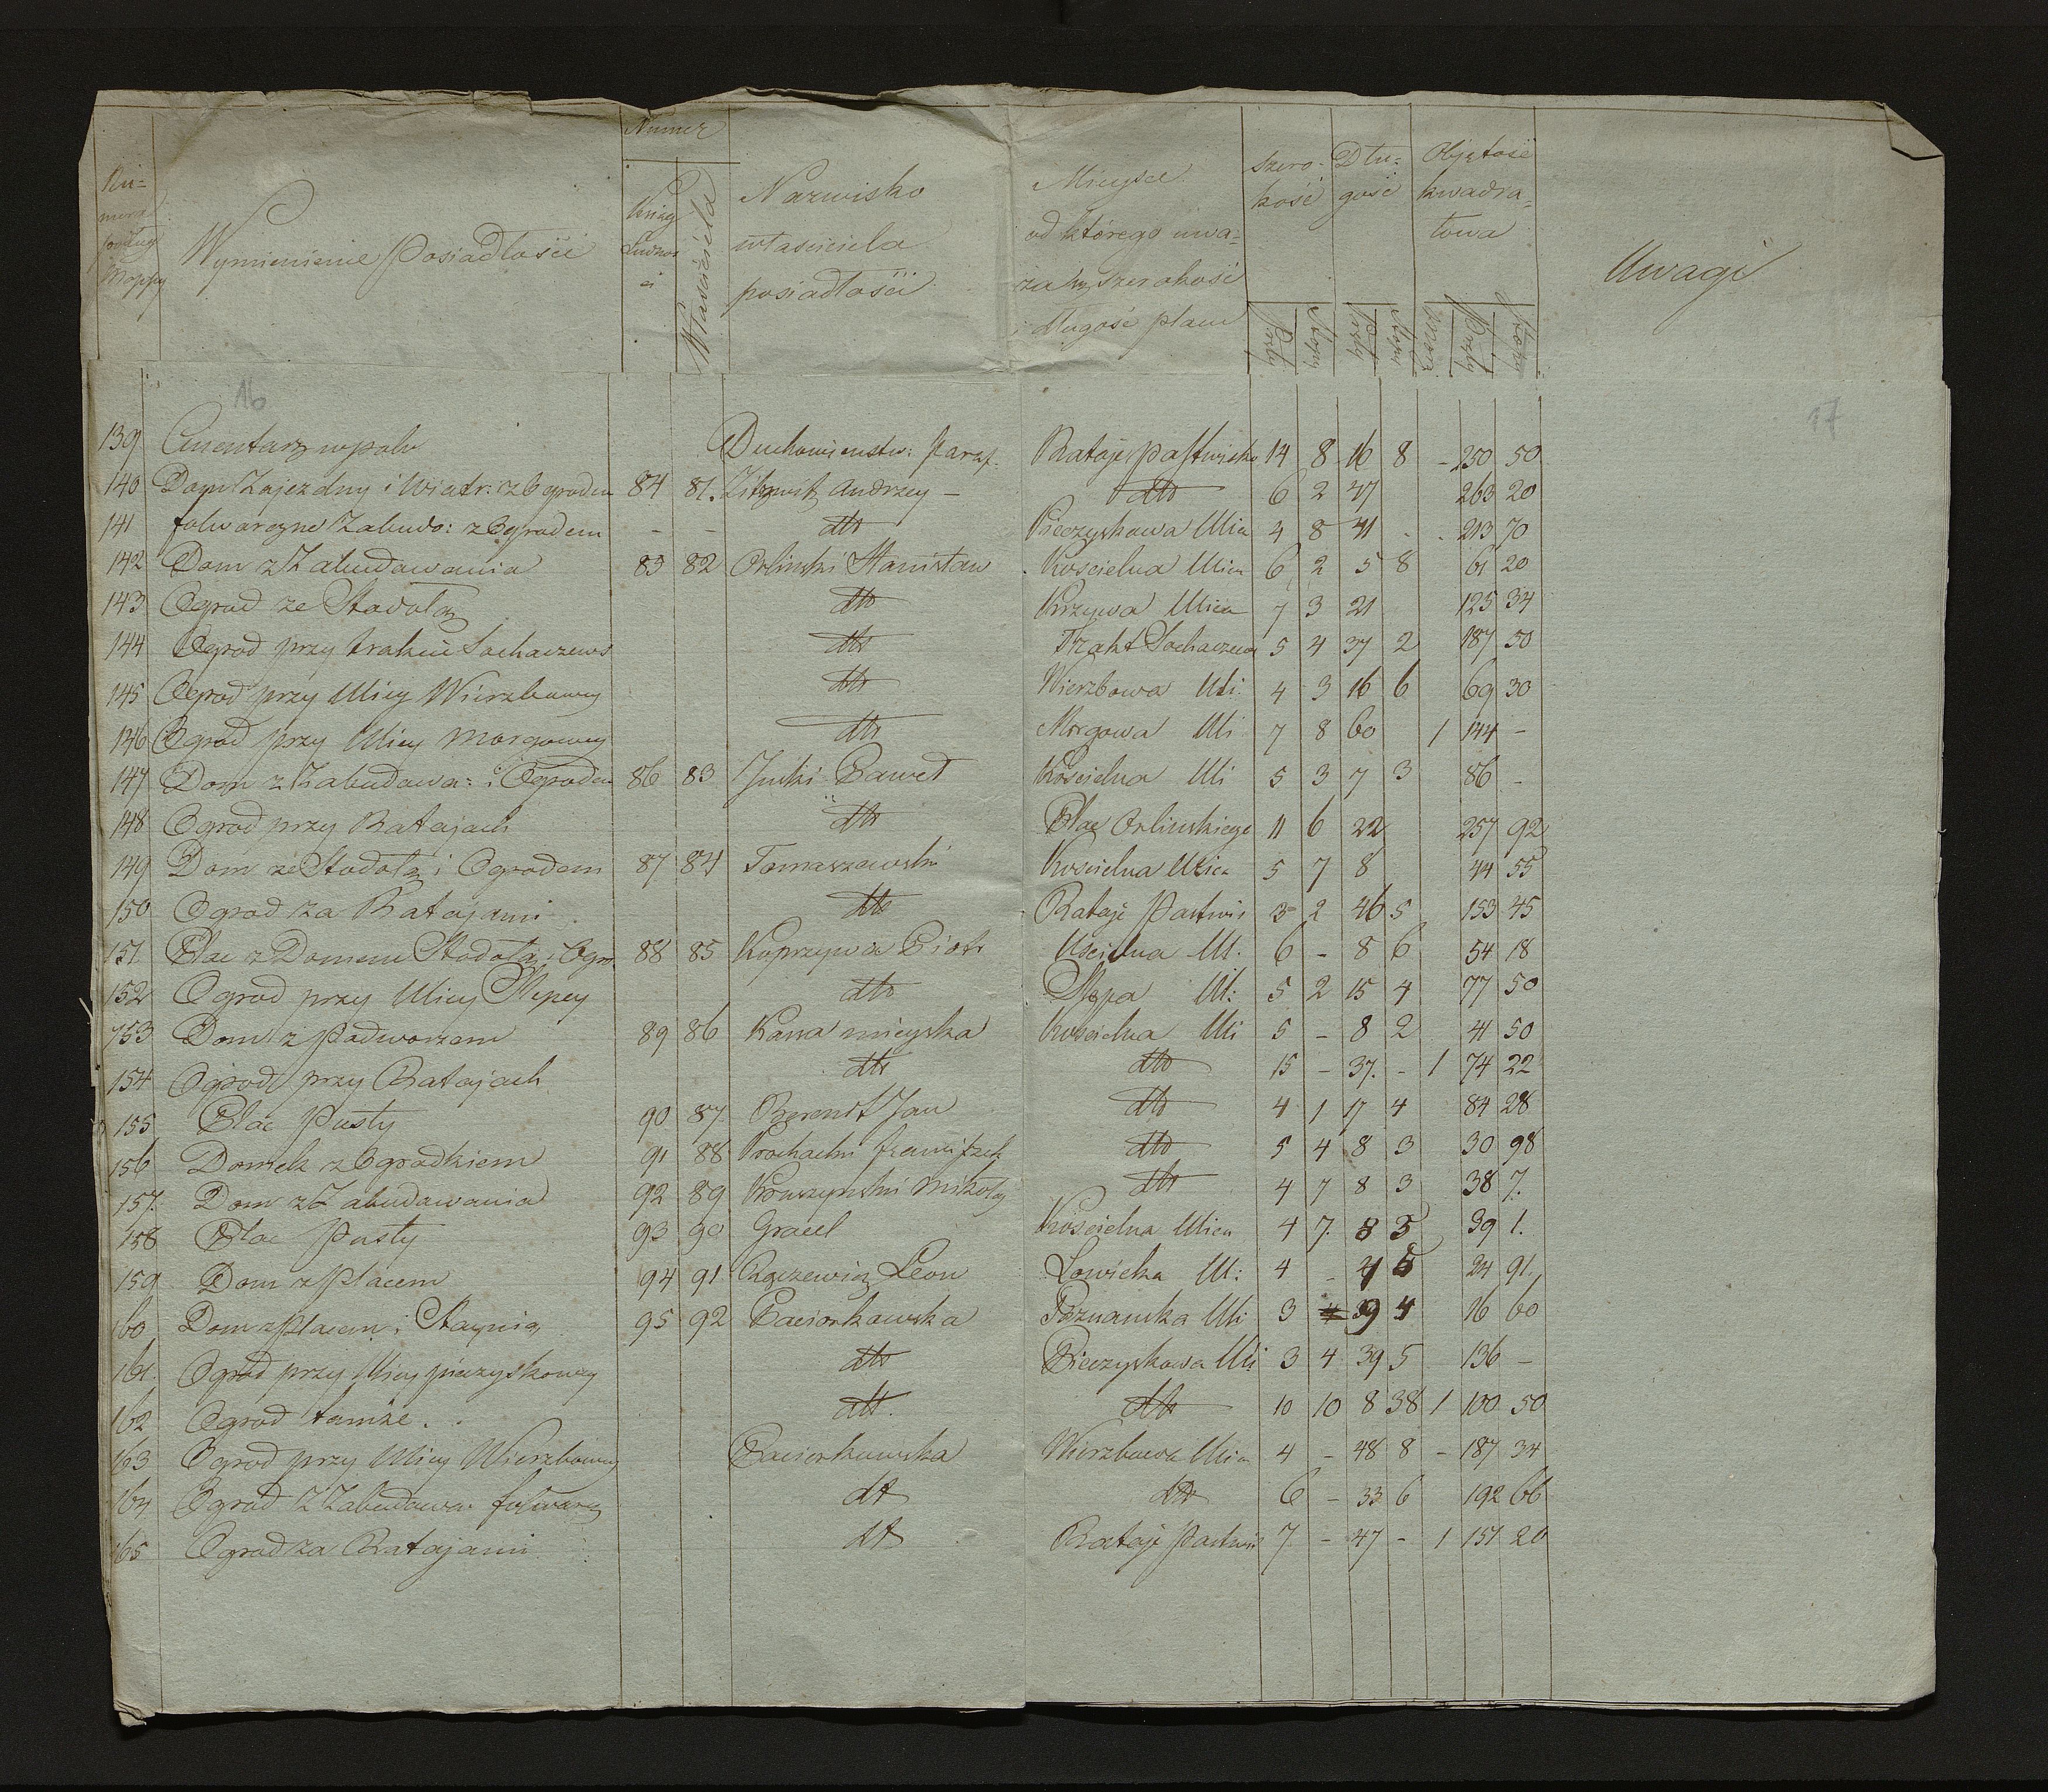 Numera podług Mappy | Wymienienie Posiadłości | Numer Księg Ludności | Właściciela | Nazwisko właściciela posiadłości | Mieysce od którego uważa się szerokość i długość placu | Szerokość Pręty Stopy | Długość Pręty Stopy | Objętość kwadratowa Pręty Stopy | Uwagi
16 17
139 Cmentarz w polu Duchowieństw: Paraf. Rataje Pastwisko 14 8 16 8 - 250 50
140 Dom Zajezdny i Wiatr: z Ogrodem 84 81. Andrzey - dtto 6 2 47 263 20
141 folwarczne Zabudo: z Ogrodem - - dtto Pieczyskowa Ulica 4 8 41 . . 213 70
142 Dom z Zabudowania 83 82 Orlinski Stanisław Koscielna Ulica 6 2 5 8 61 20
143 Ogrod ze Stodołą dtto Krzywa Ulica 7 3 21 125 34
144 Ogrod przy trakcie Sochaczews dtto Trakt Sochaczew 5 4 37 2 187 50
145 Ogrod przy Ulicy Wierzbowey dtto Wierzbowa Uli. 4 3 16 6 69 30
146 Ogrod przy Ulicy Morgowey dtto Morgowa Uli 7 8 60 1 144 -
147 Dom z Zabudowa: i Ogrodem 86 83 Paweł Koscielna Uli 5 3 7 3 86 -
148 Ogrod przy Ratajach dtto Plac Orlinskiego 11 6 22 257 92
149 Dom ze Stodołą i Ogrodem 87 84 Tomaszewski Koscielna Ulica 5 7 8 44 55
150 Ogrod za Ratajami dtto Rataje Pastwis 3 2 46 5 153 45
151 Plac z Domem Stodołą i Ogr. 88 85 Koprzywa Piotr Uscielna Ul. 6 - 8 6 54 18
152 Ogrod przy Ulicy Slepey dtto Slepa Ul: 5 2 15 4 77 50
153 Dom z Podworzem 89 86 Kassa mieyska Koscielna Uli 5 - 8 2 41 50
154 Ogrod przy Ratajach dtto dtto 15 - 37. - 1 74 22
155 Plac Pusty 90 87 Berendt Jan dtto 4 1 17 4 84 28
156 Domek z Ogrodkiem 91 88 Prochacki dtto 5 4 8 3 30 98
157. Dom z Zabudowania 92 89 Kruszynski Mikołay dtto 4 7 8 3 38 7.
158 Plac Pusty 93 90 Koscielna Ulica 4 7. 8 5 39 1.
159 Dom z Placem 94 91 Leon Lowicka Ul: 4 - 24 91.
160 Dom z Placem i Staynią 95 92 Paciorkowska Poznanska Uli 3 4 39 4 16 60
161. Ogrod przy Ulicy pieczyskowey dtto Pieczyskowa Uli 3 4 39 5 136 -
162 Ogrod tamże. dtto dtto 10 10 8 38 1 100 50
163 Ogrod przy Ulicy Wierzbowey Paciorkowska Wierzbowa Ulica 4 - 48 8 - 187 34
164 Ogrod z Zabudowa: folwarcz dt dtto 6 - 33 6 192 66
165 Ogrod za Ratajami dt Rataje Pastwis 7 - 47 - 1 151 20